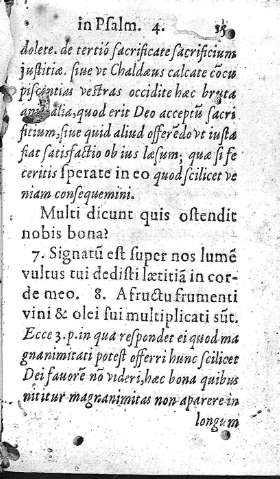 in Psalm. 4. 35
dolete. de tertiò sacrificate sacrificium
iustitiæ. siue vt Chaldæus calcate cōcu
piscentias vestras occidite hæc bruta
animalia, quod erit Deo acceptū sacri
ficium, siue quid aliud offerēdo vt iusta
fiat satisfactio ob ius læsum; quæ si fe
ceritis sperate in eo quod scilicet ve
niam consequemini.
Multi dicunt quis ostendit
nobis bona?
7. Signatū est super nos lumē
vultus tui dedisti lætitiā in cor-
de meo. 8. A fructu frumenti
vini & olei sui multiplicati sūt.
Ecce 3. p. in qua respondet ei quod ma
gnanimitati potest offerri hunc scilicet
Dei fauorē nō videri, hæc bona quibus
nititur magnanimitas non aparere in
longum